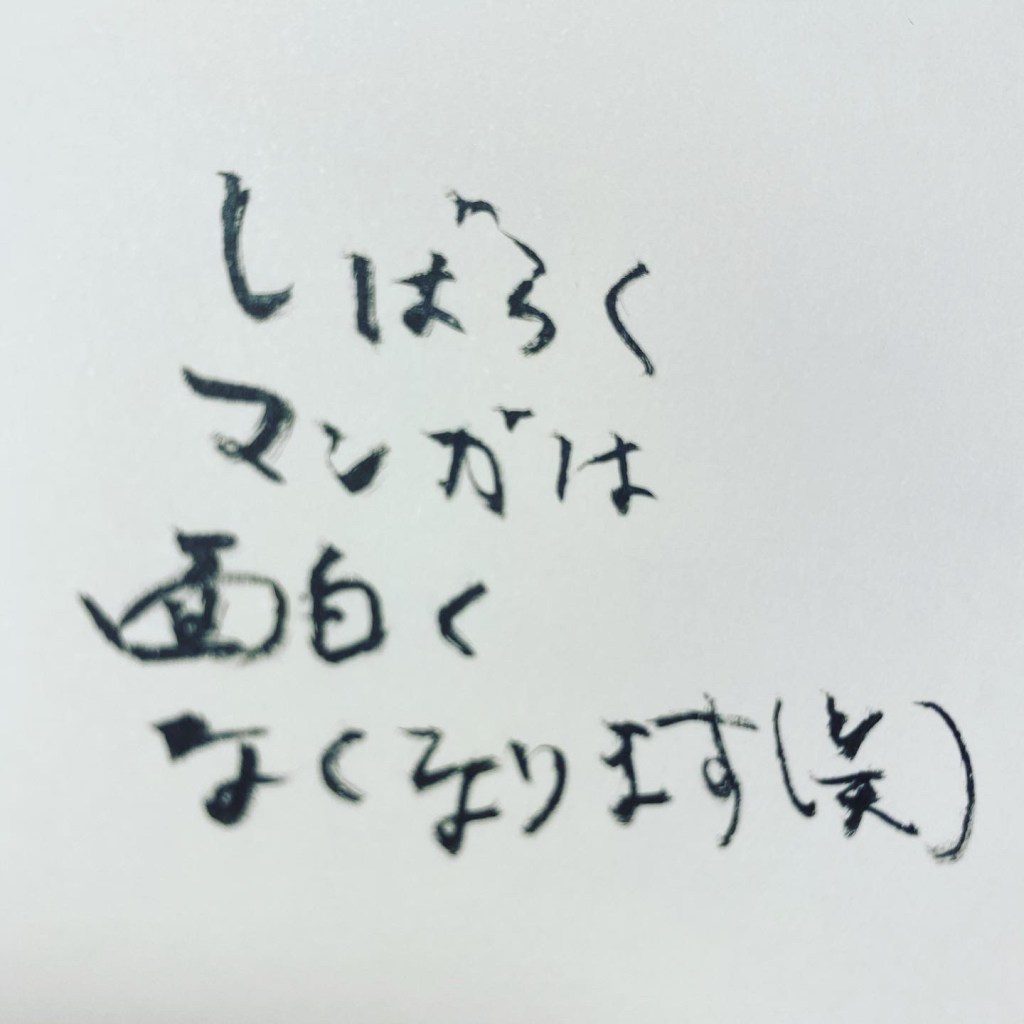 しばらく
マンガは
面白く
なくなります(笑)